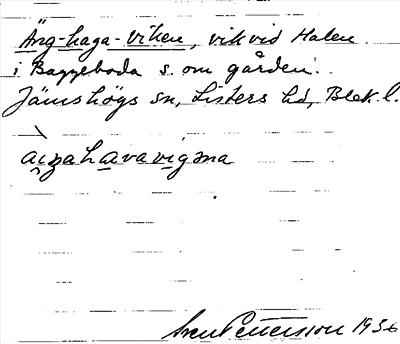 Äng-haga-viken, vik vid Halen
i Baggeboda s. om gården.
Jämshögs sn, Listers hd, Blek. l.
Sven Petterson 1936